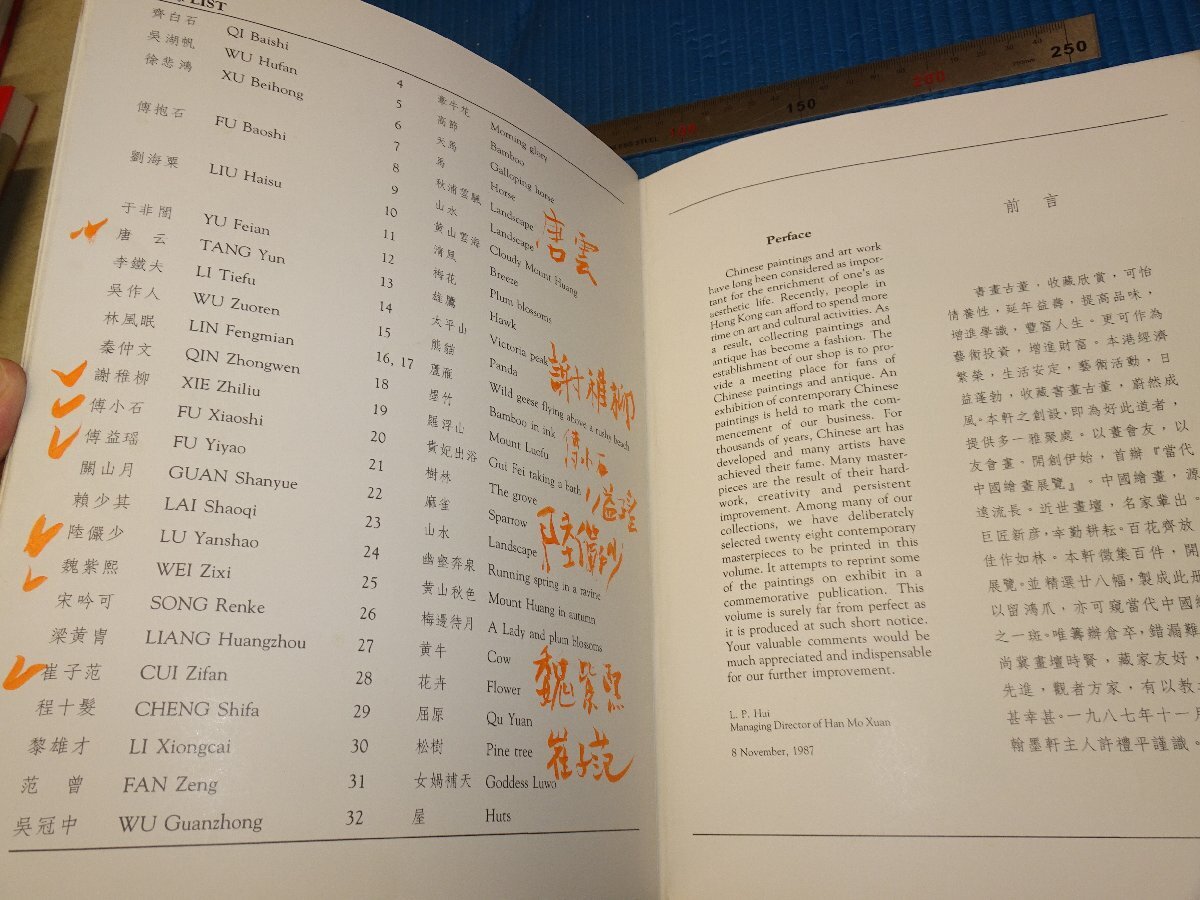 LIST
齊白石 QI Baishi 4 牽牛花 Morning glory
吳湖帆 WU Hufan 5 高節 Bamboo
徐悲鴻 XU Beihong 6 天馬 Galloping horse
7 馬 Horse
傅抱石 FU Baoshi 8 秋浦雲颿 Landscape
9 山水 Landscape
劉海粟 LIU Haisu 10 黃山雲海 Cloudy Mount Huang
11 清風 Breeze
于非闇 YU Feian 12 梅花 Plum blossoms
唐云 TANG Yun 13 雄鷹 Hawk
李鐵夫 LI Tiefu 14 太平山 Victoria peak
吳作人 WU Zuoren 15 熊貓 Panda
林風眠 LIN Fengmian 16, 17 蘆雁 Wild geese flying above a rushy beach
秦仲文 QIN Zhongwen 18 墨竹 Bamboo in ink
謝稚柳 XIE Zhiliu 19 羅浮山 Mount Luofu
傅小石 FU Xiaoshi 20 貴妃出浴 Gui Fei taking a bath
傅益瑶 FU Yiyao 21 樹林 The grove
關山月 GUAN Shanyue 22 麻雀 Sparrow
賴少其 LAI Shaoqi 23 山水 Landscape
陸儼少 LU Yanshao 24 幽壑奔泉 Running spring in a ravine
魏紫熙 WEI Zixi 25 黃山秋色 Mount Huang in autumn
宋吟可 SONG Renke 26 梅邊待月 A Lady and plum blossoms
梁黃冑 LIANG Huangzhou 27 黃牛 Cow
崔子范 CUI Zifan 28 花卉 Flower
程十髮 CHENG Shifa 29 屈原 Qu Yuan
黎雄才 LI Xiongcai 30 松樹 Pine tree
范曾 FAN Zeng 31 女媧補天 Goddess Luwo
吳冠中 WU Guanzhong 32 屋 Huts
唐雲
謝稚柳
傅小石
益瑶
陸儼少
魏紫熙
崔子范
150
200
250
Perface
Chinese paintings and art work
have long been considered as impor-
tant for the enrichment of one's as
aesthetic life. Recently, people in
Hong Kong can afford to spend more
time on art and cultural activities. As
a result, collecting paintings and
antique has become a fashion. The
establishment of our shop is to pro-
vide a meeting place for fans of
Chinese paintings and antique. An
exhibition of contemporary Chinese
paintings is held to mark the com-
mencement of our business. For
thousands of years, Chinese art has
developed and many artists have
achieved their fame. Many master-
pieces are the result of their hard-
work, creativity and persistent
improvement. Among many of our
collections, we have deliberately
selected twenty eight contemporary
masterpieces to be printed in this
volume. It attempts to reprint some
of the paintings on exhibit in a
commemorative publication. This
volume is surely far from perfect as
it is produced at such short notice.
Your valuable comments would be
much appreciated and indispensable
for our further improvement.
L. P. Hui
Managing Director of Han Mo Xuan
8 November, 1987
前言
書畫古董，收藏欣賞，可怡
情養性，延年益壽，提高品味，
增進學識，豐富人生。更可作為
藝術投資，增進財富。本港經濟
繁榮，生活安定，藝術活動，日
益蓬勃，收藏書畫古董，蔚然成
風。本軒之創設，即為好此道者，
提供多一雅聚處。以畫會友，以
友會畫。開創伊始，首辦『當代
中國繪畫展覽』。中國繪畫，源
遠流長。近世畫壇，名家輩出。
巨匠新彥，辛勤耕耘。百花齊放
佳作如林。本軒徵集百件，開
展覽。並精選廿八幅，製成此册
以留鴻爪，亦可窺當代中國繪
之一斑。唯籌辦倉卒，錯漏難
尚冀畫壇時賢，藏家友好，
先進，觀者方家，有以教
甚幸甚。一九八七年十一月
翰墨軒主人許禮平謹識。